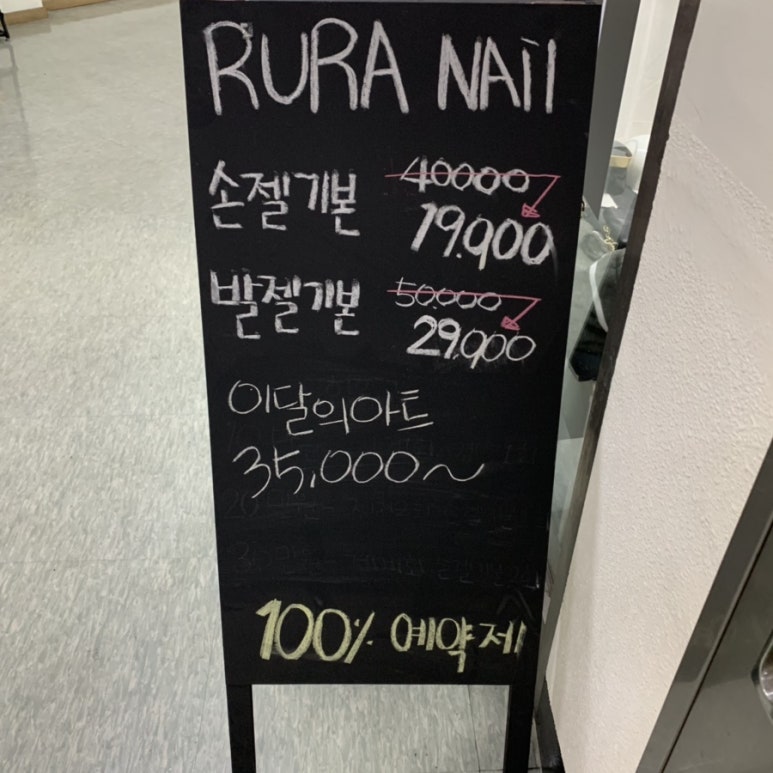 RURA NAIl
손젤기본 40000
19.900
발젤기본 50.000
29.900
이달의아트
35,000~
100% 예약제